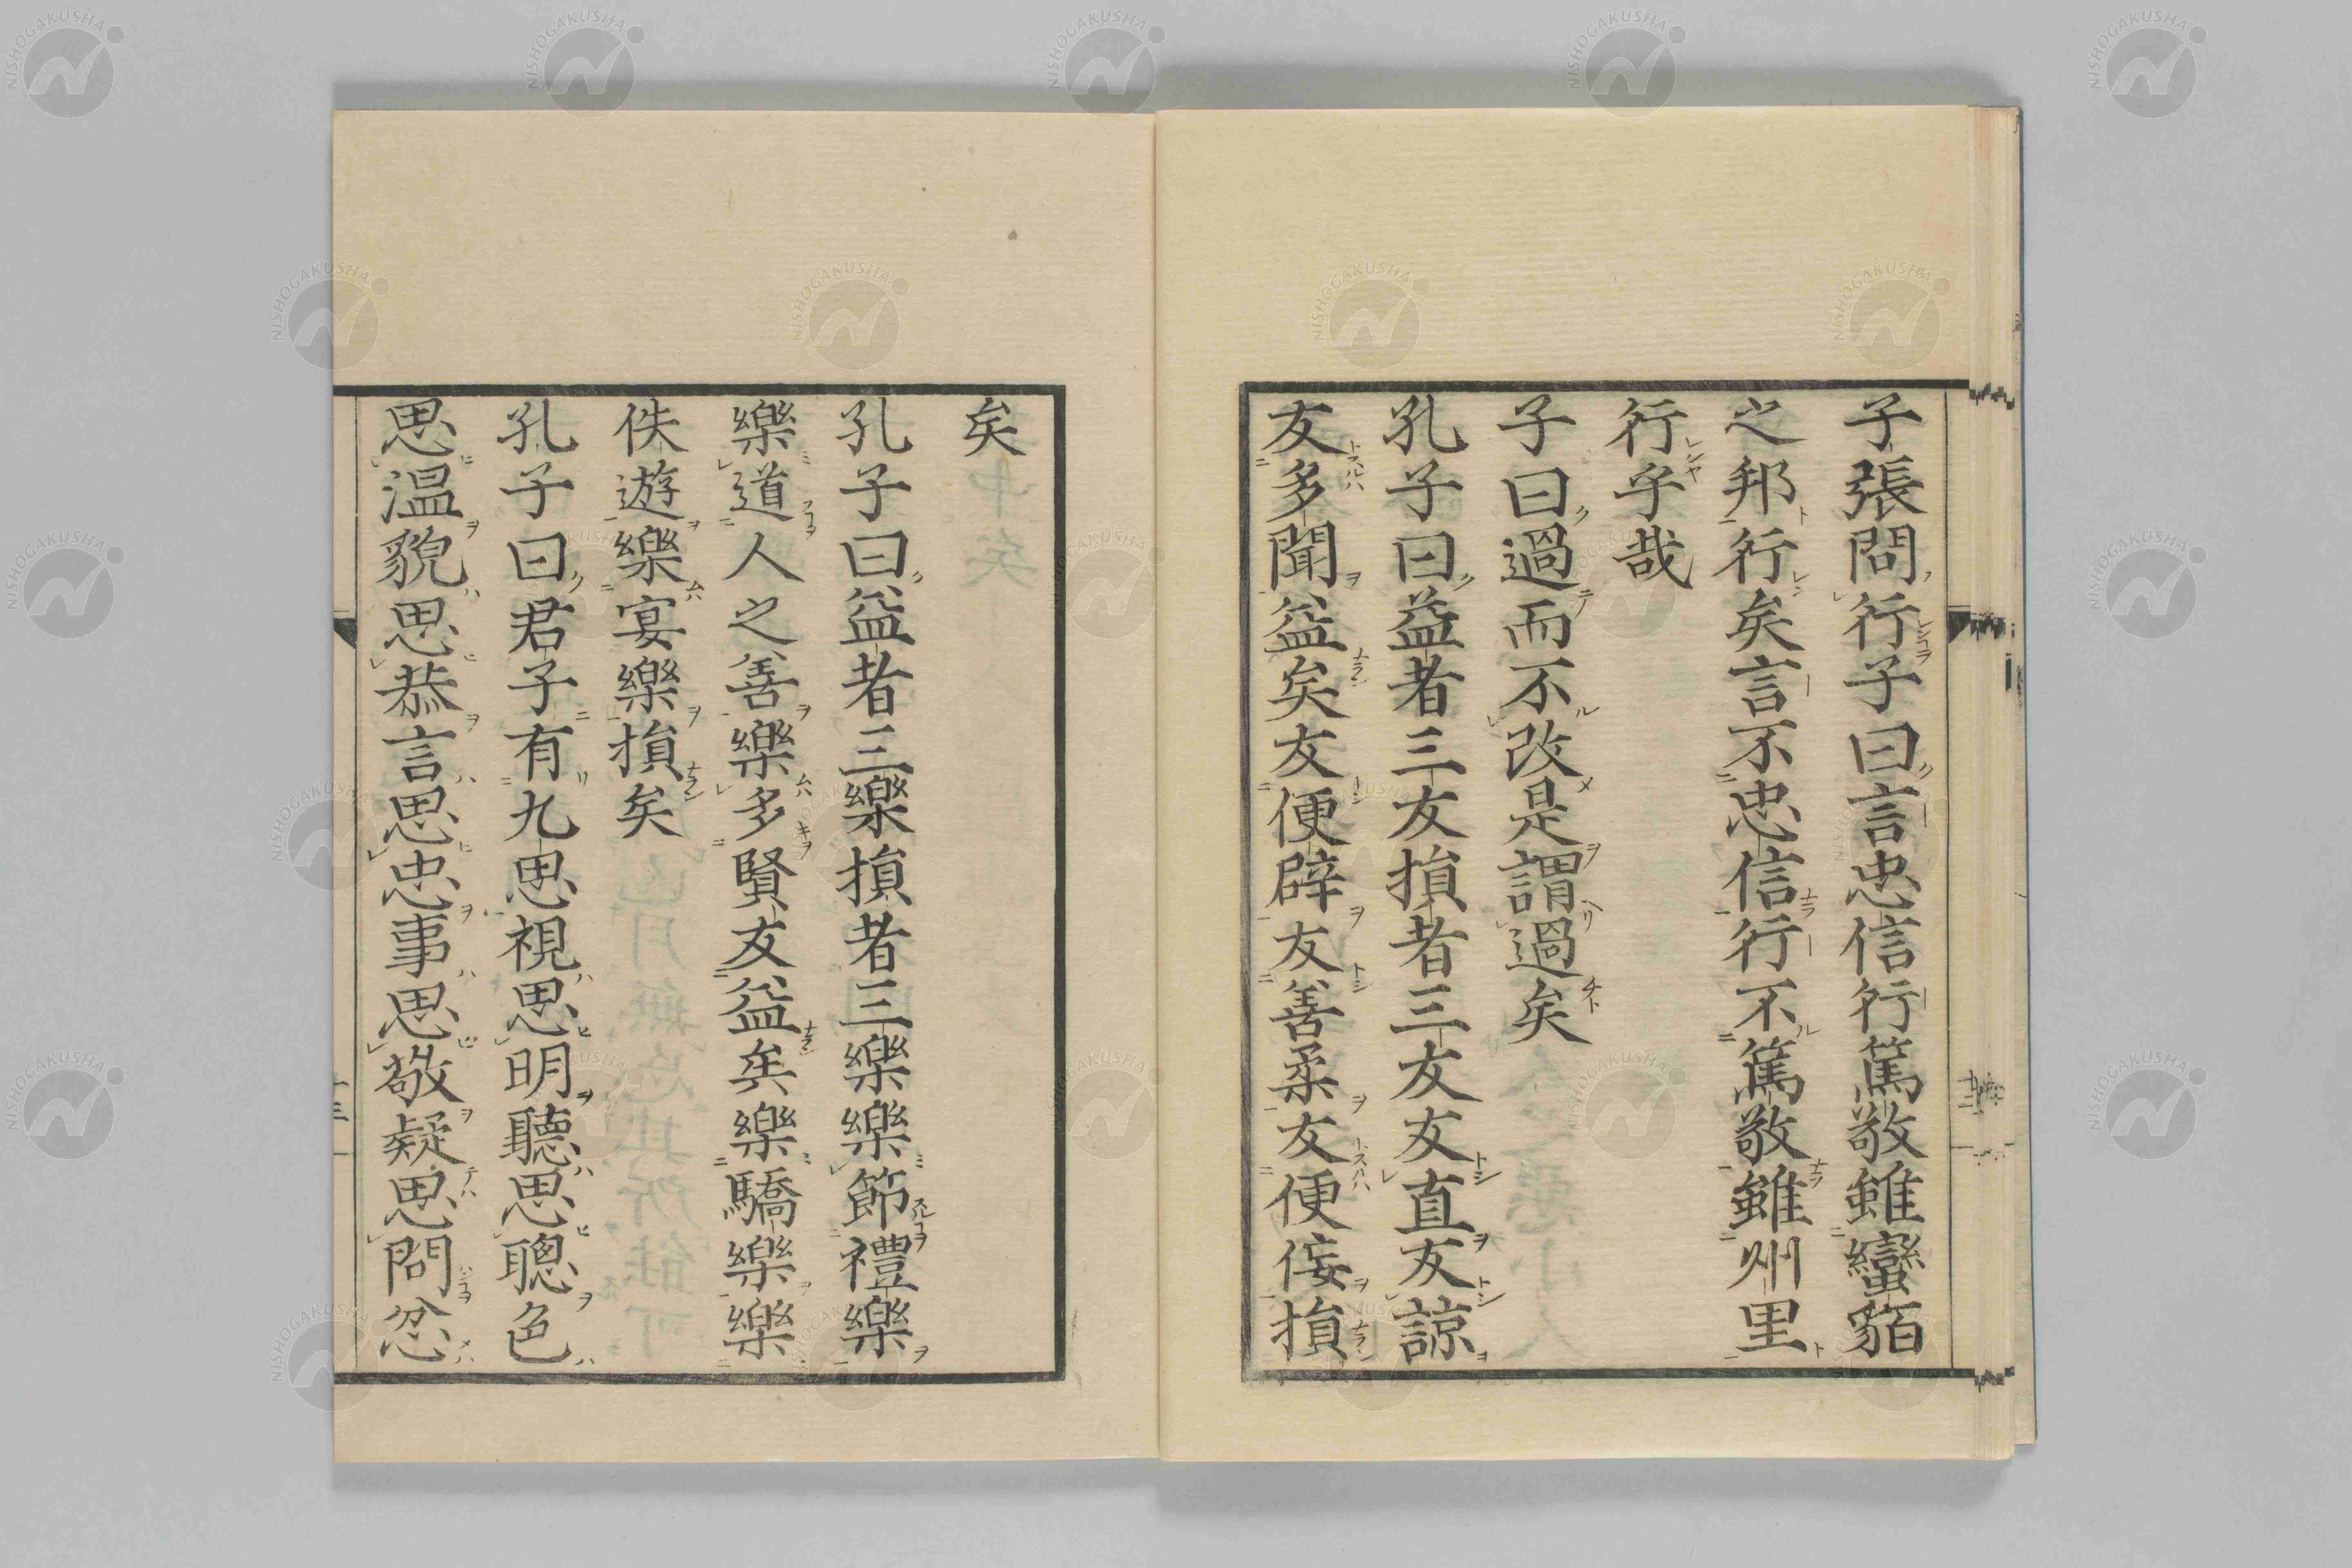 子張問行子曰言忠信行篤敬雖蠻貊
之邦行矣言不忠信行不篤敬雖州里
行乎哉
子曰過而不改是謂過矣
孔子曰益者三友損者三友友直友諒
友多聞益矣友便辟友善柔友便佞損
矣
孔子曰益者三樂損者三樂樂節禮樂
樂道人之善樂多賢友益矣樂驕樂樂
佚遊樂宴樂損矣
孔子曰君子有九思視思明聽思聰色
思溫貌思恭言思忠事思敬疑思問忿